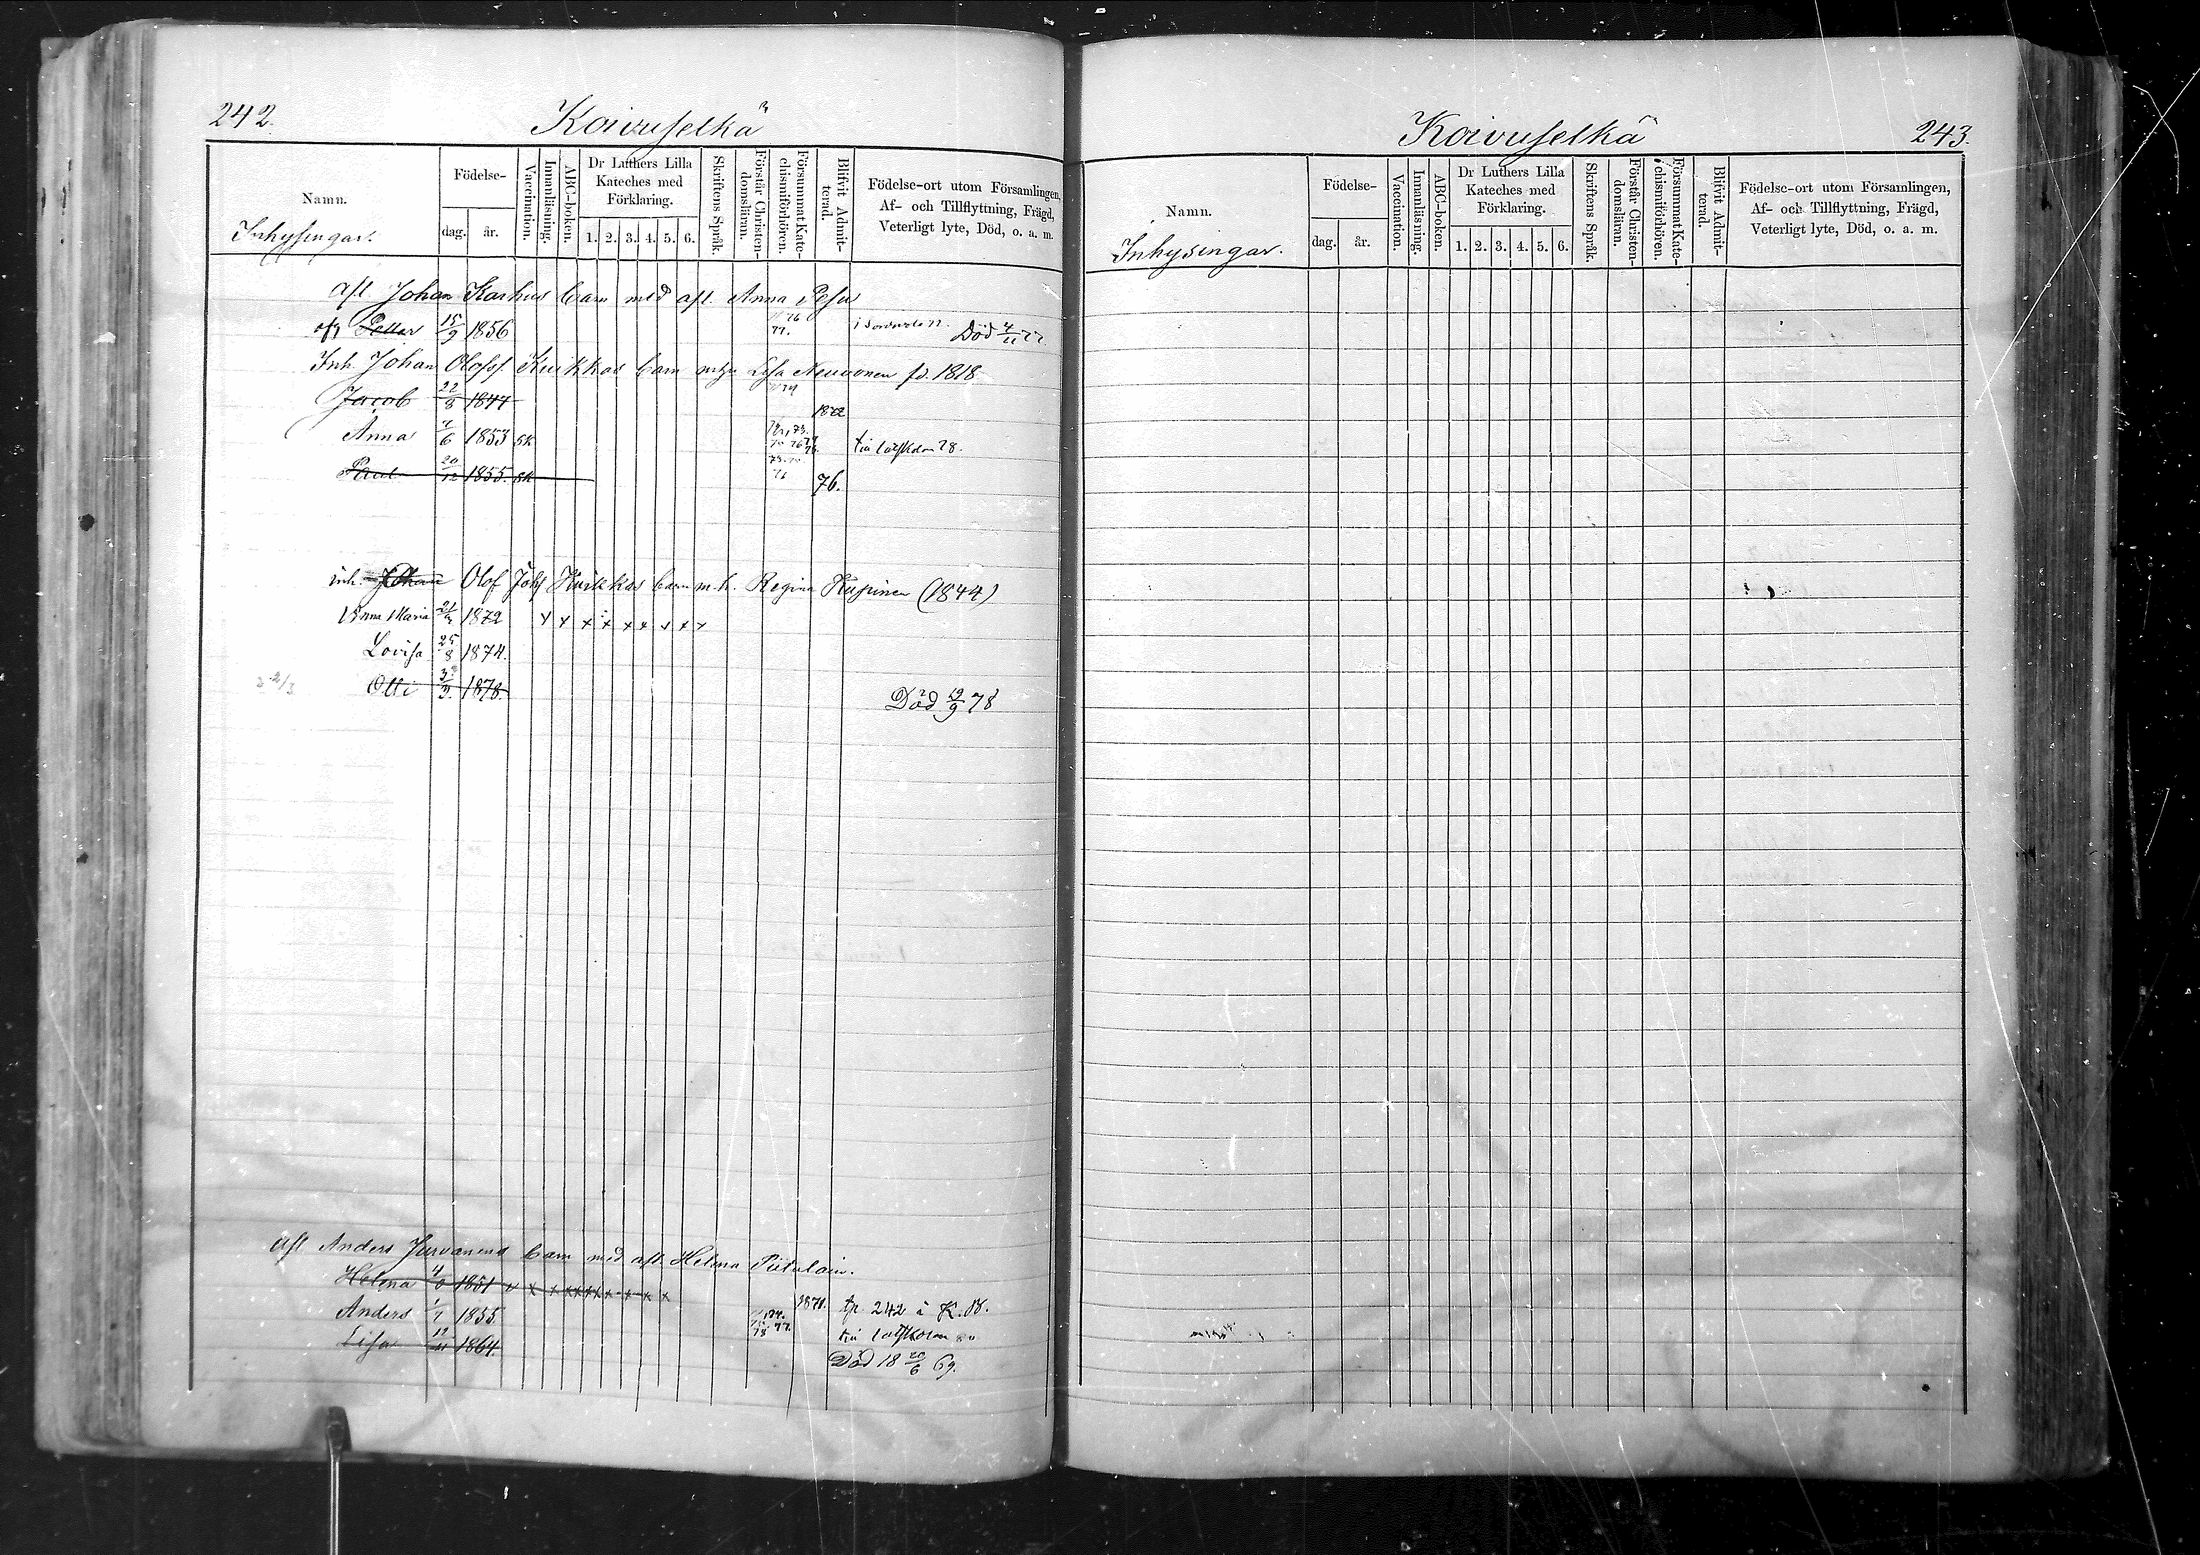 242.
Koivuselkä
Namn.
Inhysingar.
Födelse-
dag. år.
Vaccination.
Innanläsning.
ABC-boken.
Dr Luthers Lilla Kateches med Förklaring.
1. 2. 3. 4. 5. 6.
Skriftens Språk.
Förstår Christen-domsläran.
Försummat Kate-chismiförhören.
Blifvit Admit-terad.
Födelse-ort utom Församlingen,
Af- och Tillflyttning, Frägd,
Veterligt lyte, Död, o. a. m.
afl Johan Karhus barn med afl. Anna
Petter 15/9 1856 77. Död 4/11 77
Inh. Johan Olofss Kuikkas barn m hu Lisa Neuvonen fd. 1818
Jacob 22/8 1844 1872
Anna 7/6 1853 sk
Paul 20/12 1855. sk 76.
inh. Johan Olof Johs Kuikkas barn m. h. Regina (1844)
Anna Maria 1872 x x x x x x x x x
Lovisa 25/8 1874.
Otti 1878. Död 19/9 78
afl Anders barn med afl. Helena
Helena 1851 v x x x x x x x x x x 1871. tp. 242 i K. B.
Anders 1/7 1855.
Lisa 1864. Död 18 20/6 69.
Koivuselkä
243.
Namn.
Inhysingar.
Födelse-
dag. år.
Vaccination.
Innanläsning.
ABC-boken.
Dr Luthers Lilla Kateches med Förklaring.
1. 2. 3. 4. 5. 6.
Skriftens Språk.
Förstår Christen-domsläran.
Försummat Kate-chismiförhören.
Blifvit Admit-terad.
Födelse-ort utom Församlingen,
Af- och Tillflyttning, Frägd,
Veterligt lyte, Död, o. a. m.